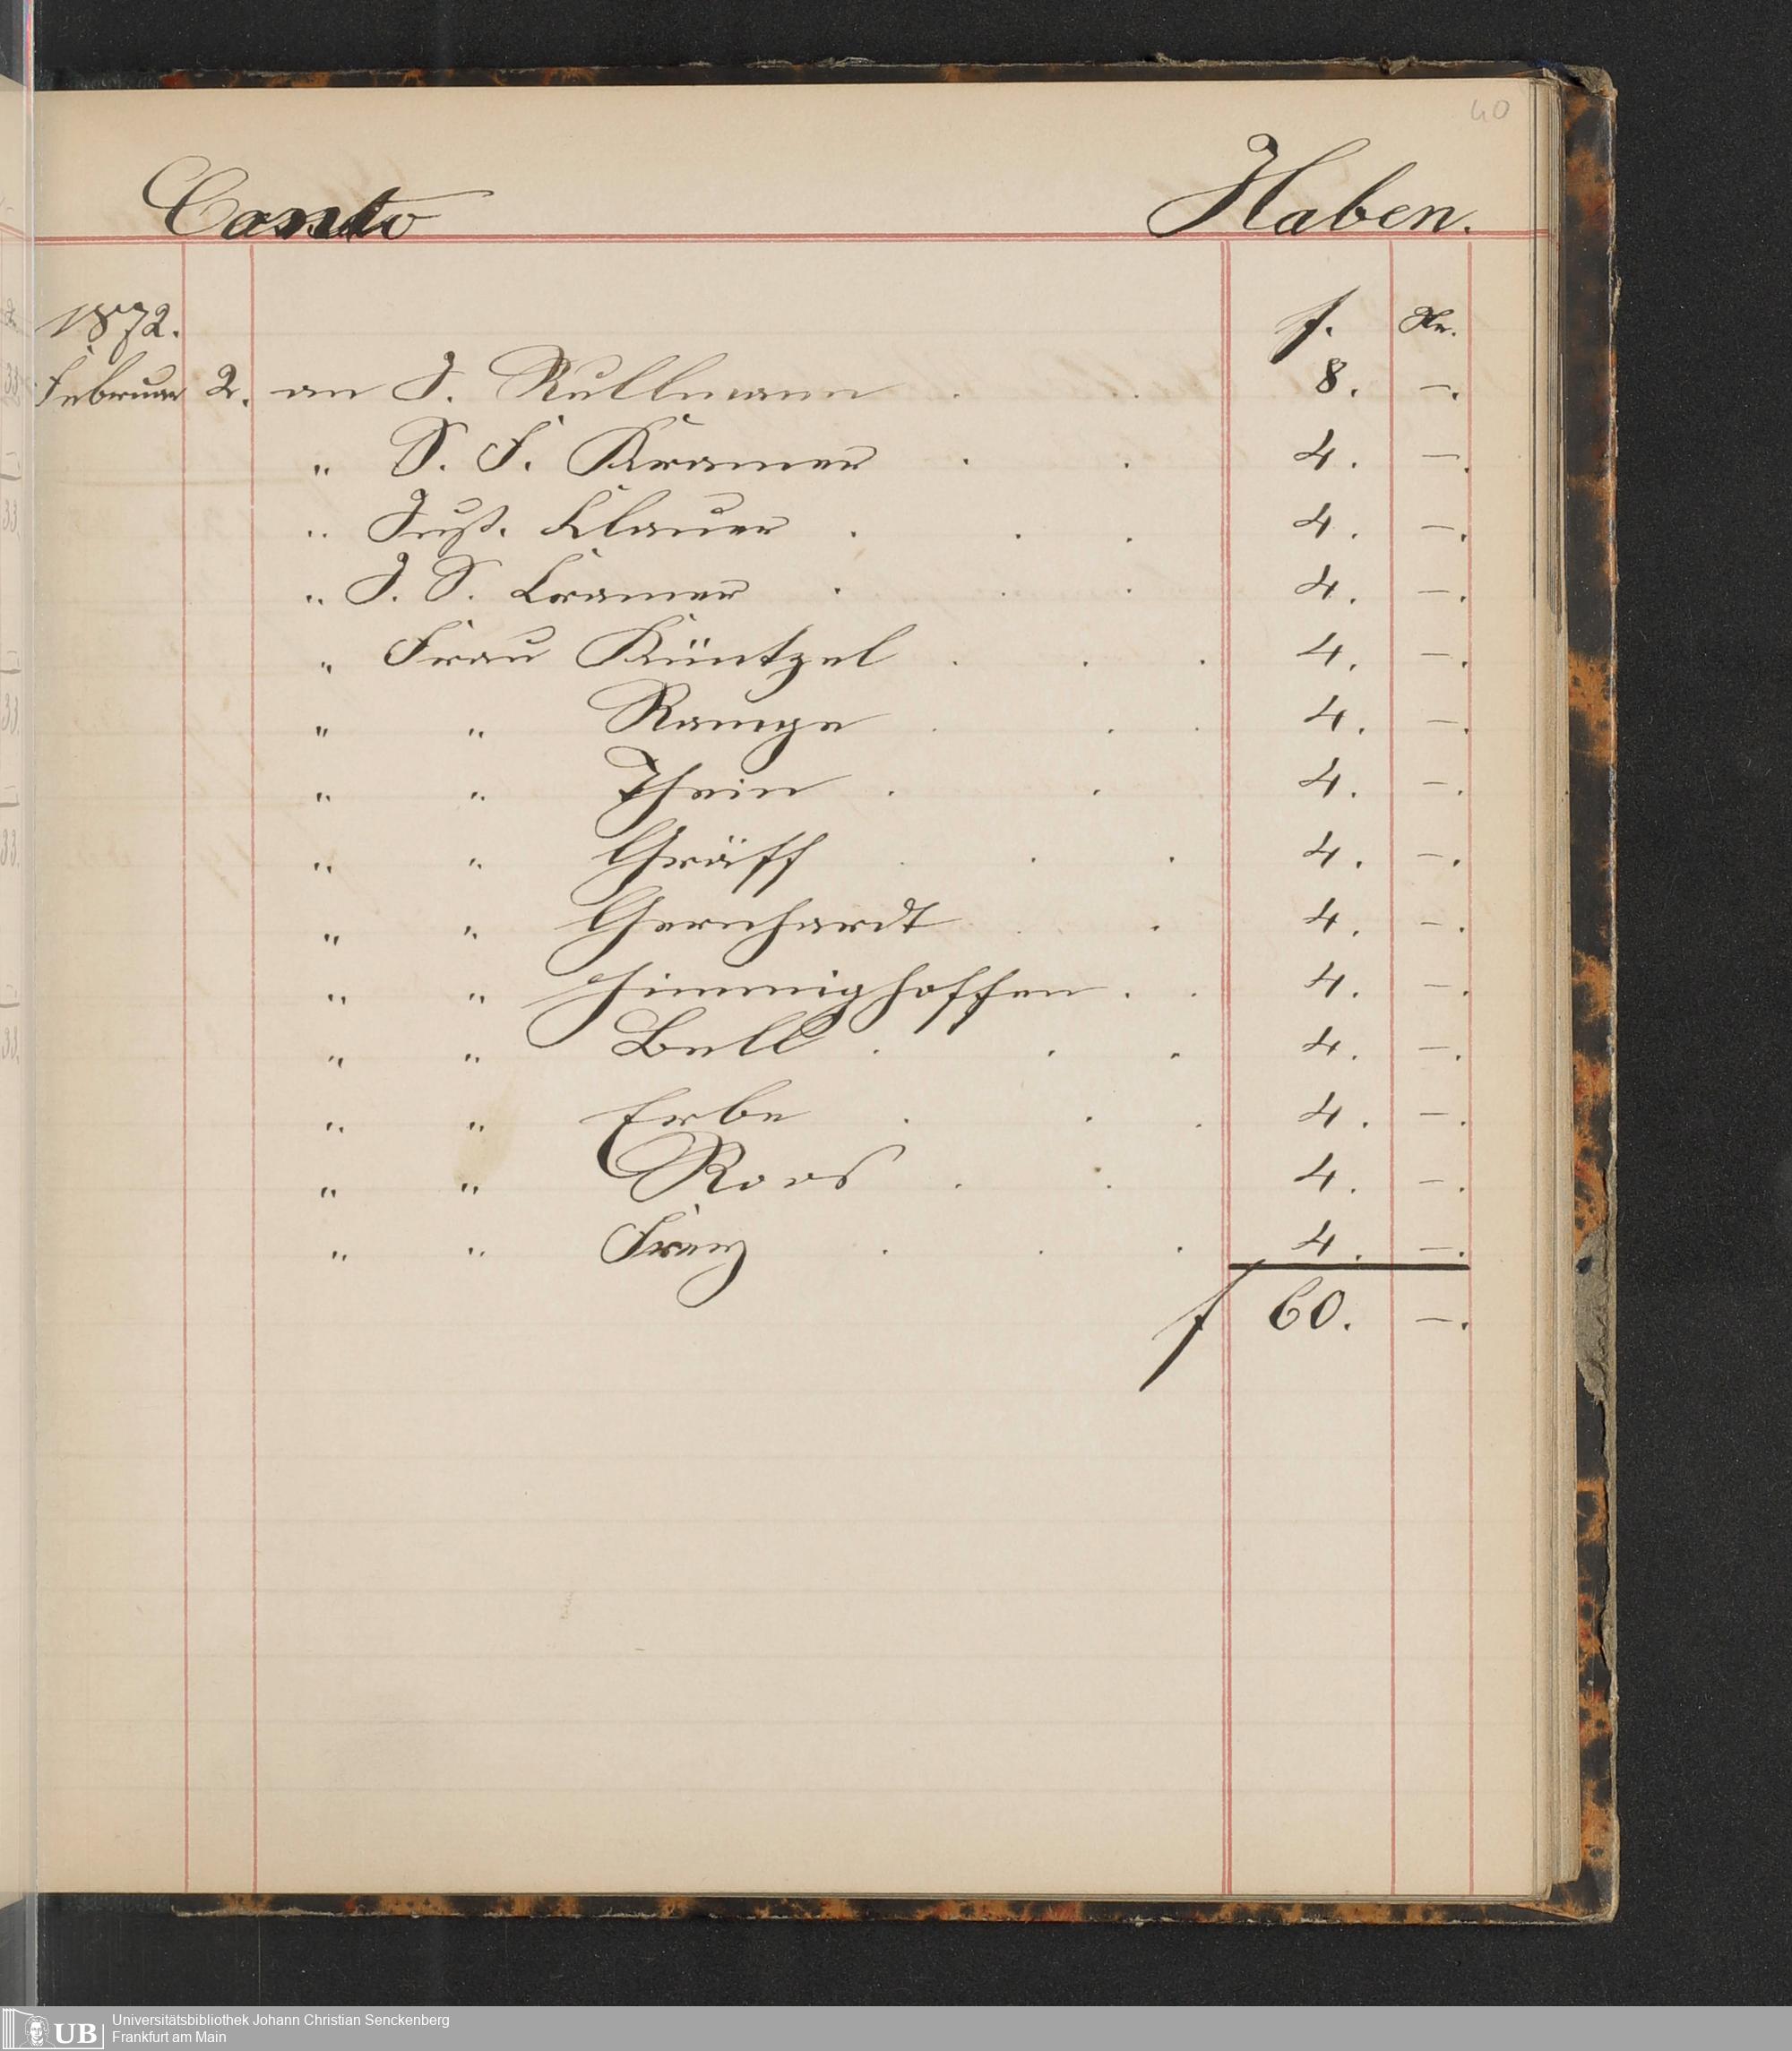 40
Conto Haben.
1872. f. Kr.
Februar 2. an J. Rullmann . . 8. —.
" S. F. Kramer . . 4. —.
" Just. Klauer . . . 4. —.
" J. S. Cramer . . . 4. —.
" Frau Küntzel . . . 4. —.
" " Rampe . . . 4. —.
" " Thein . . 4. —.
" " Gräff . . . 4. —.
" " Gernhardt . . 4. —.
" " Himmighoffen . . 4. —.
" " Bell . . . 4. —.
" " Erbe . . . 4. —.
" " Roos . . 4. —.
" " . . . 4. —.
f 60. —.
UB Universitätsbibliothek Johann Christian Senckenberg
Frankfurt am Main